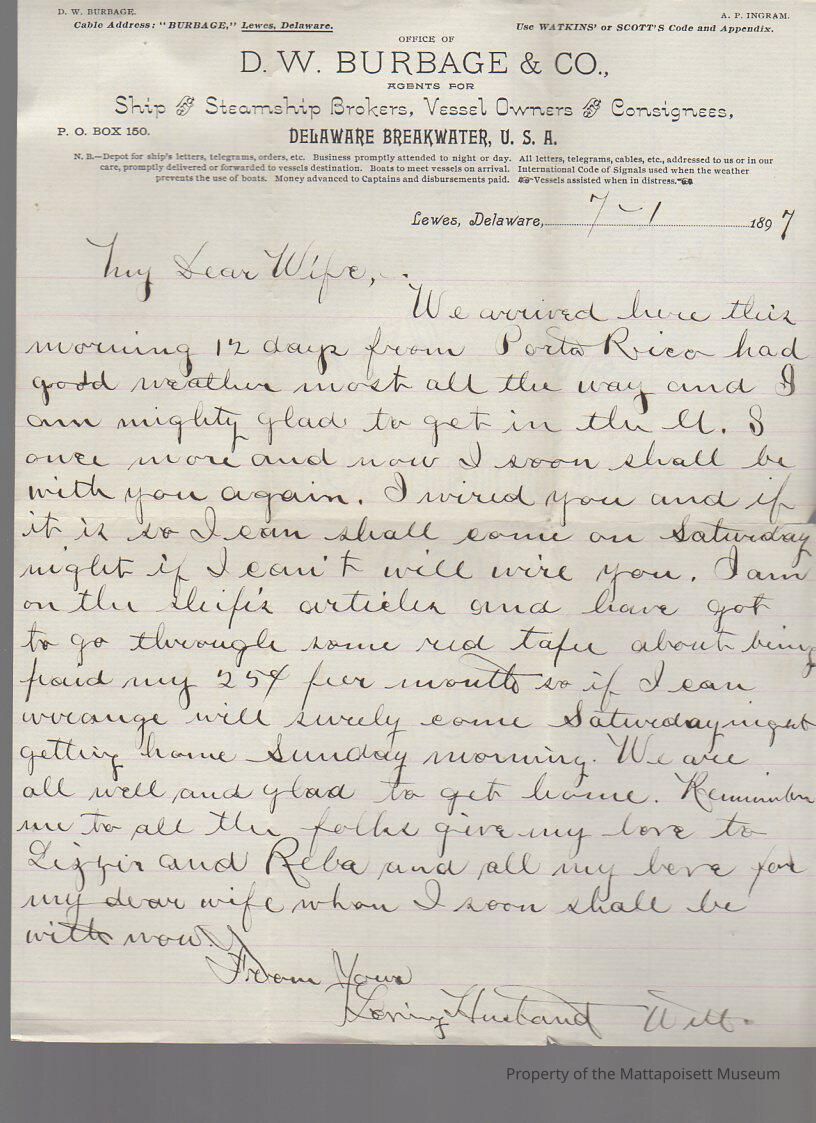 D. W. BURBAGE.
A. P. INGRAM.
Cable Address: "BURBAGE," Lewes, Delaware.
Use WATKINS' or SCOTT'S Code and Appendix.
OFFICE OF
D. W. BURBAGE & CO.,
AGENTS FOR
Ship & Steamship Brokers, Vessel Owners & Consignees,
P. O. BOX 150.
DELAWARE BREAKWATER, U. S. A.
N. B.—Depot for ship's letters, telegrams, orders, etc. Business promptly attended to night or day. All letters, telegrams, cables, etc., addressed to us or in our
care, promptly delivered or forwarded to vessels destination. Boats to meet vessels on arrival. International Code of Signals used when the weather
prevents the use of boats. Money advanced to Captains and disbursements paid. Vessels assisted when in distress.
Lewes, Delaware, 7-1 1897
My Dear Wife,
We arrived here this
morning 12 days from Porto Rico had
good weather most all the way and I
am mighty glad to get in the U. S
once more and now I soon shall be
with you again. I wired you and if
it is so I can shall come on Saturday
night if I can't will wire you. I am
on the ship's articles and have got
to go through some red tape about being
paid my 25¢ per month so if I can
arrange will surely come Saturday night
getting home Sunday morning. We are
all well and glad to get home. Remember
me to all the folks give my love to
Lizzie and Reba and all my love for
my dear wife whom I soon shall be
with now.
From Your
Loving Husband Will.
Property of the Mattapoisett Museum